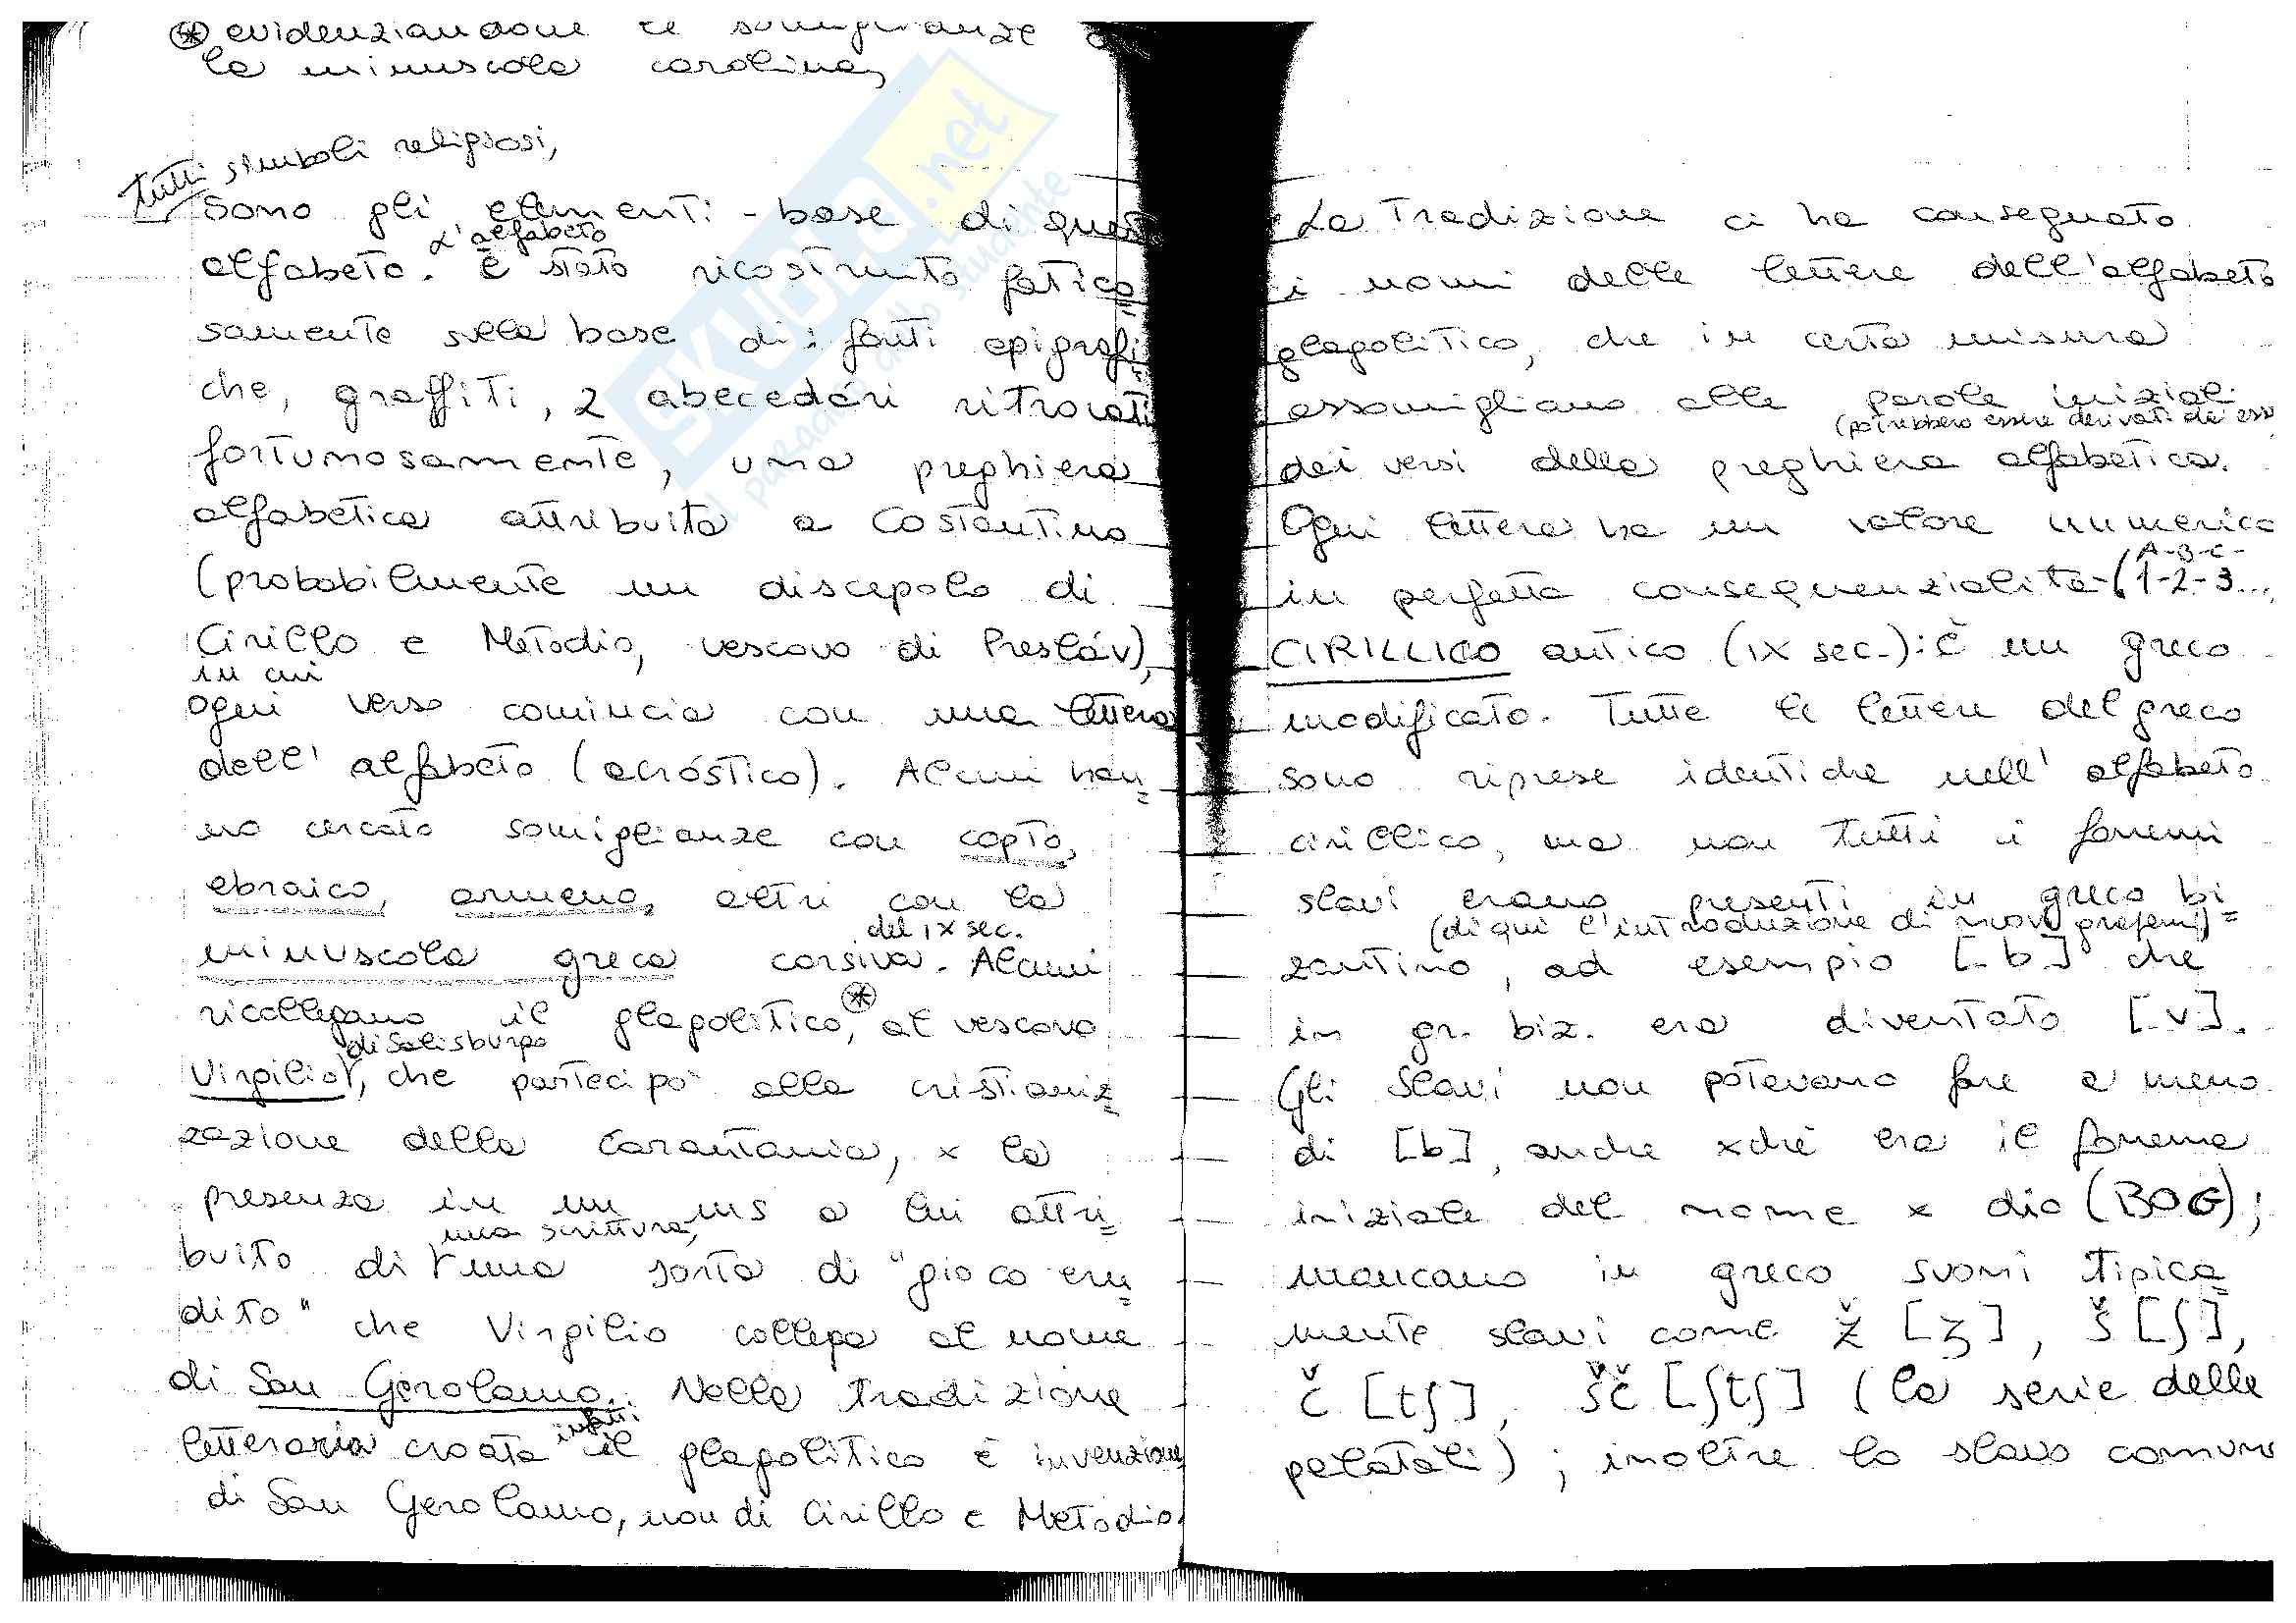 ⊛ evidenziandone le somiglianze
la minuscola carolina,
tutti simboli religiosi,
sono gli elementi-base di
alfabeto. L'alfabeto è stato ricostruito fatico=
samente sulla base di: fonti epigrafi=
che, graffiti, 2 abecedári ritrovati
fortunosamente, una preghiera
alfabetica attribuita a Costantino
(probabilmente un discepolo di
Cirillo e Metodio, vescovo di Presláv),
in cui
ogni verso comincia con una lettera
dell'alfabeto (acróstico). Alcuni han=
no cercato somiglianze con copto,
ebraico, armeno, altri con la
del IX sec.
minuscola greca corsiva. Alcuni
ricollegano il glagolitico,⊛ al vescovo
di Salisburgo
Virgilio, che partecipò alla cristianiz=
zazione della Carantania, x la
presenza in un ms a lui attri=
una scrittura,
buito di una sorta di "gioco eru=
dito" che Virgilio collega al nome
di San Gerolamo. Nella tradizione
letteraria croata infatti il glagolitico è invenzione
di San Gerolamo, non di Cirillo e Metodio.
La tradizione ci ha consegnato
i nomi delle lettere dell'alfabeto
glagolitico, che in certa misura
assomigliano alle parole iniziali
(potrebbero essere derivati da
dei versi della preghiera alfabetica.
Ogni lettera ha un valore numerico
A-B-C-
in perfetta consequenzialità-(1-2-3...,
CIRILLICO antico (IX sec.): è un greco
modificato. Tutte le lettere del greco
sono riprese identiche nell'alfabeto
cirillico, ma non tutti i fonemi
slavi erano presenti in greco bi=
(di qui l'introduzione di nuovi grafemi)
zantino, ad esempio [b] che
in gr. biz. era diventato [v].
Gli Slavi non potevano fare a meno
di [b], anche xché era il fonema
iniziale del nome x dio (BOG);
mancano in greco suoni tipica=
mente slavi come ž [ʒ], š [ʃ],
č [tʃ], šč [ʃtʃ] (la serie delle
palatali); inoltre lo slavo comune
SKUOLA.net
il paradiso dello studente